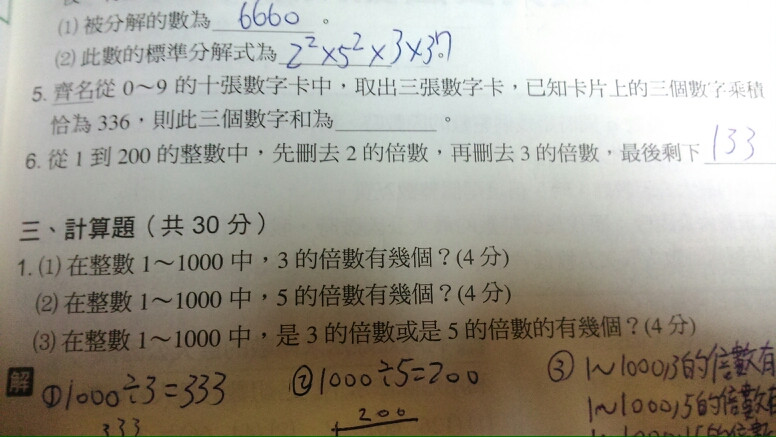 (1) 被分解的數為 6660 。
(2) 此數的標準分解式為 2²×5²×3×37。
5. 齊名從 0～9 的十張數字卡中，取出三張數字卡，已知卡片上的三個數字乘積
恰為 336，則此三個數字和為 。
6. 從 1 到 200 的整數中，先刪去 2 的倍數，再刪去 3 的倍數，最後剩下 133
三、計算題（共 30 分）
1. (1) 在整數 1～1000 中，3 的倍數有幾個？(4 分)
(2) 在整數 1～1000 中，5 的倍數有幾個？(4 分)
(3) 在整數 1～1000 中，是 3 的倍數或是 5 的倍數的有幾個？(4 分)
解 ①1000÷3=333 ②1000÷5=200 ③ 1~1000,3的倍數有
333 200 1~1000,5的倍數有